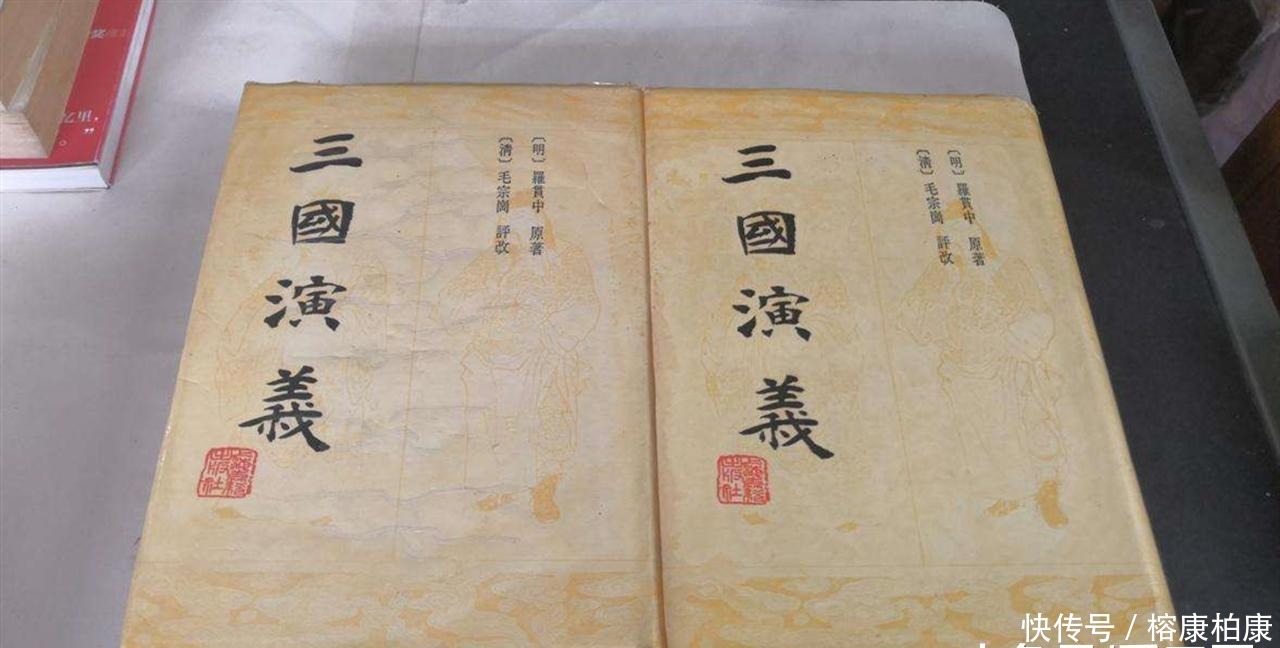 三國演義
〔明〕羅貫中 原著
〔清〕毛宗崗 評改
三國演義
〔明〕羅貫中 原著
〔清〕毛宗崗 評改
出版社
出版社
快传号 / 榕康柏康